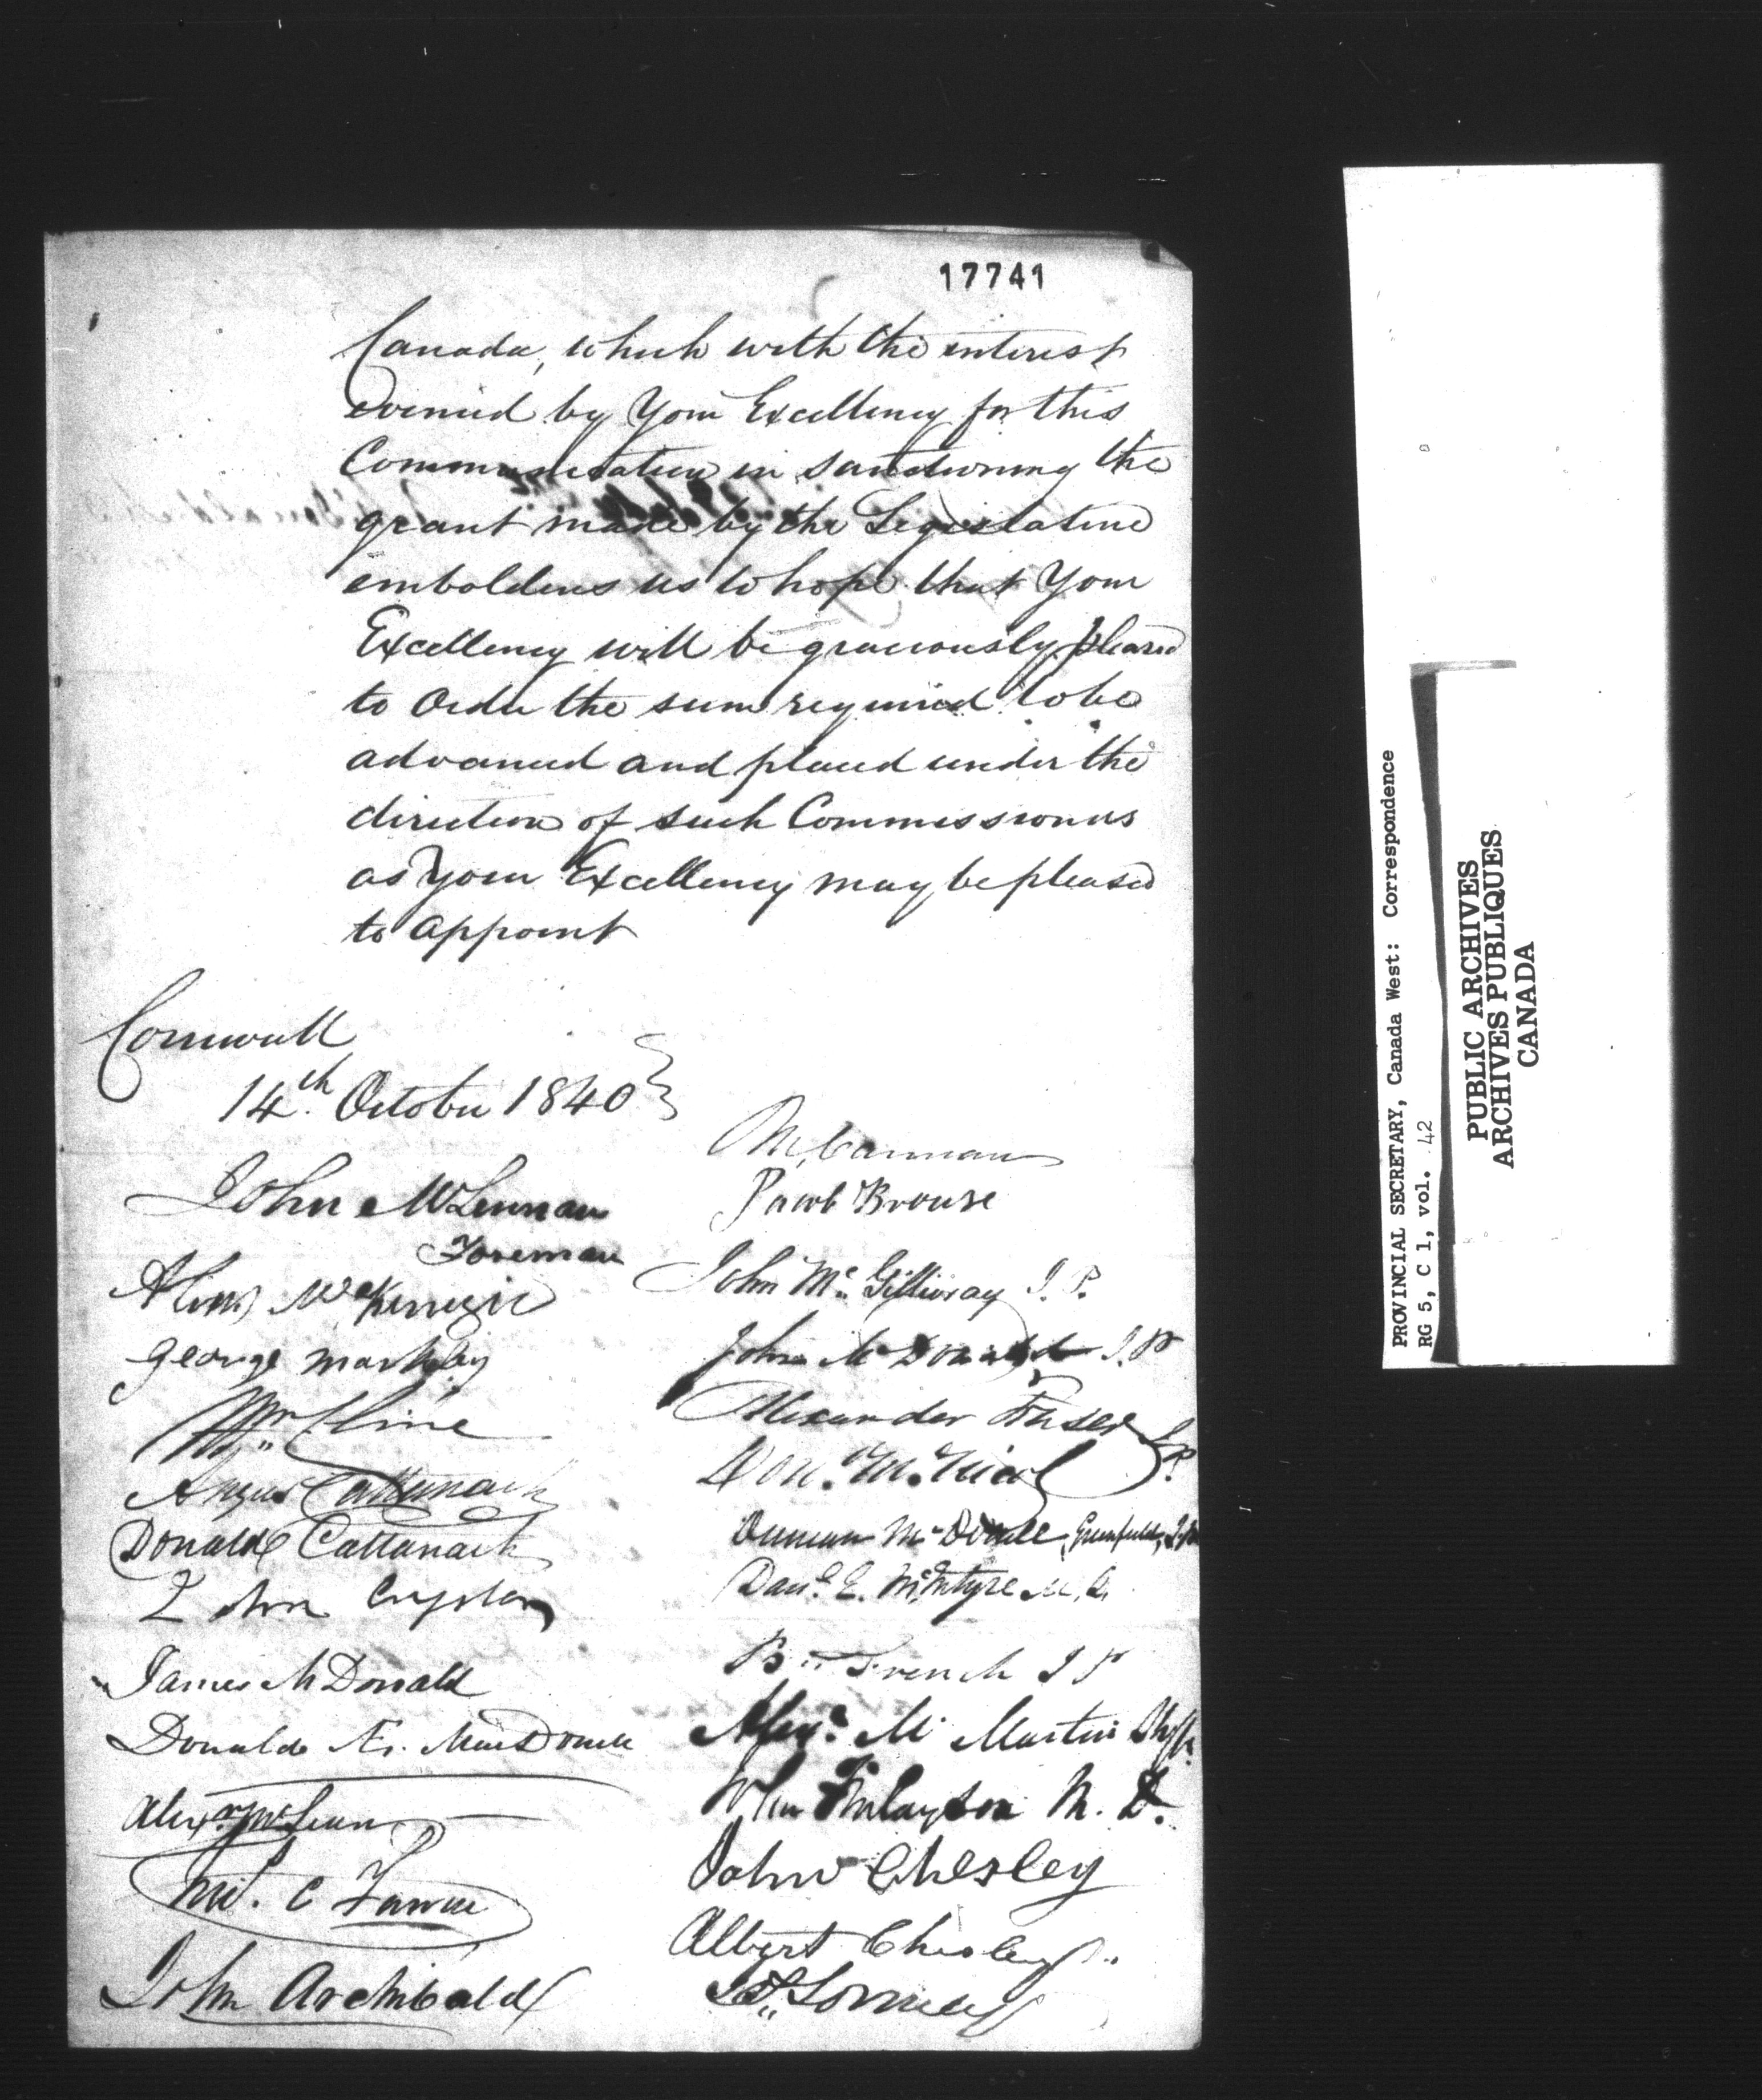 17741
Canada, which with the interest
evinced by Your Excellency for this
Communication in sanctioning the
grant made by the Legislature
emboldens us to hope that Your
Excellency will be graciously pleased
to Order the sum required to be
advanced and placed under the
direction of such Commissioners
as Your Excellency may be pleased
to appoint
Cornwall
14th October 1840
John McLennan
Foreman
McKenzie
George Markley
Wm Cline
Angus Cattanach
Donald Cattanach
John Crysler
James McDonald
Donald Æ. MacDonell
Alexr McLean
John Archibald
M. Cannan
Jacob Brouse
John McGillivray J.P.
John McDonald J.P
Alexander Fraser J.P.
Don. McNicol
Duncan McDonell, Greenfield,
Danl. E. McIntyre M.D.
B. French J P
Alexr. McMartin Shff
Finlayson M.D.
John Chesley
Albert Chesley
PROVINCIAL SECRETARY, Canada West: Correspondence
RG 5, C 1, vol. 42
PUBLIC ARCHIVES
ARCHIVES PUBLIQUES
CANADA